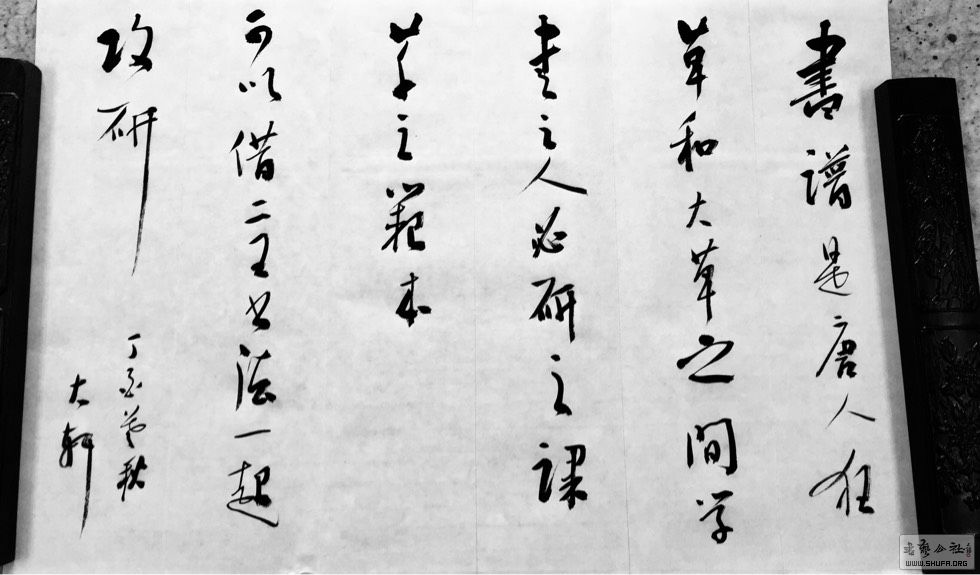 書譜是唐人狂
草和大草之間学
書之人必研之課
草之範本
可以借二王书法一起
攻研
丁酉暮秋
大軒
書藝公社
WWW.SHUFA.ORG